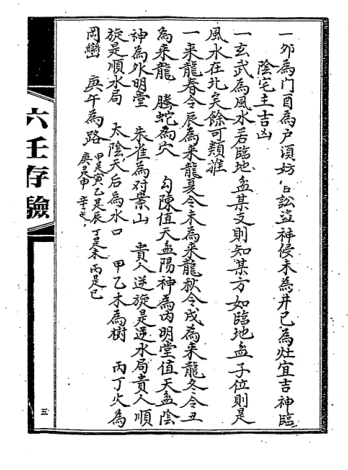 一夘為門酉為户須妨口訟盜神侵未為井巳為灶宜吉神臨
陰宅主吉凶
一玄武為風水若臨地盆某支則知某方如臨地盆子位則是
風水在北矣餘可類推
一来龍春令辰為来龍夏令未為来龍秋令戌為来龍冬令丑
為来龍 騰蛇為穴 勾陳值天盆陽神為內明堂值天盆陰
神為外明堂 朱雀為对景山 貴人逆旋是逆水局貴人順
旋是順水局 太陰天后為水口 甲乙木為樹 丙丁火為
岡巒 庚午為路 甲是寅乙是辰丁是未丙是巳
庚是申
六壬存驗
五